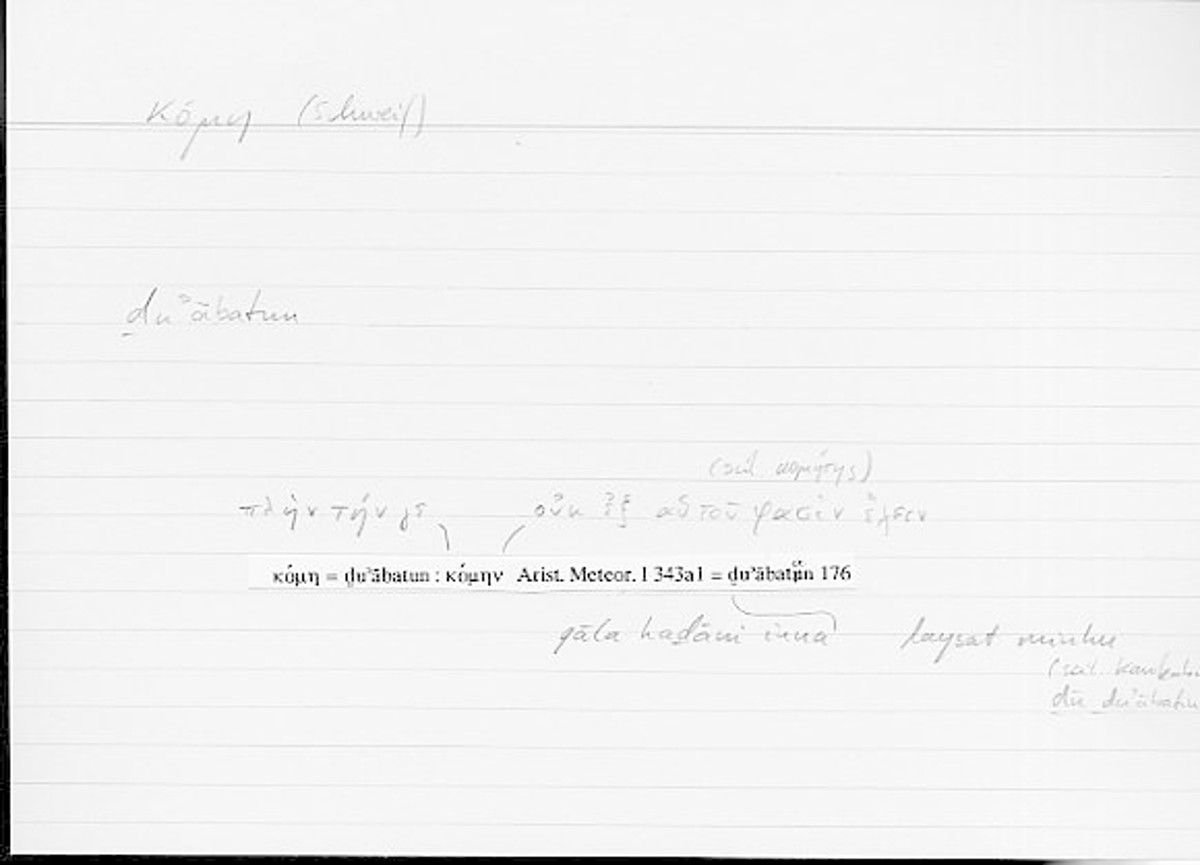 κόμη (Schweif)
ḏuʾābatun
(scil. κομήτης)
πλὴν τήν γε οὐκ ἐξ αὑτοῦ φασὶν ἔχειν
κόμη = ḏuʾābatun : κόμην Arist. Meteor. I 343a1 = ḏuʾābatun 176
qāla haḏāni inna laysat minhu
(scil. kaukabu
ḏū ḏuʾābatin